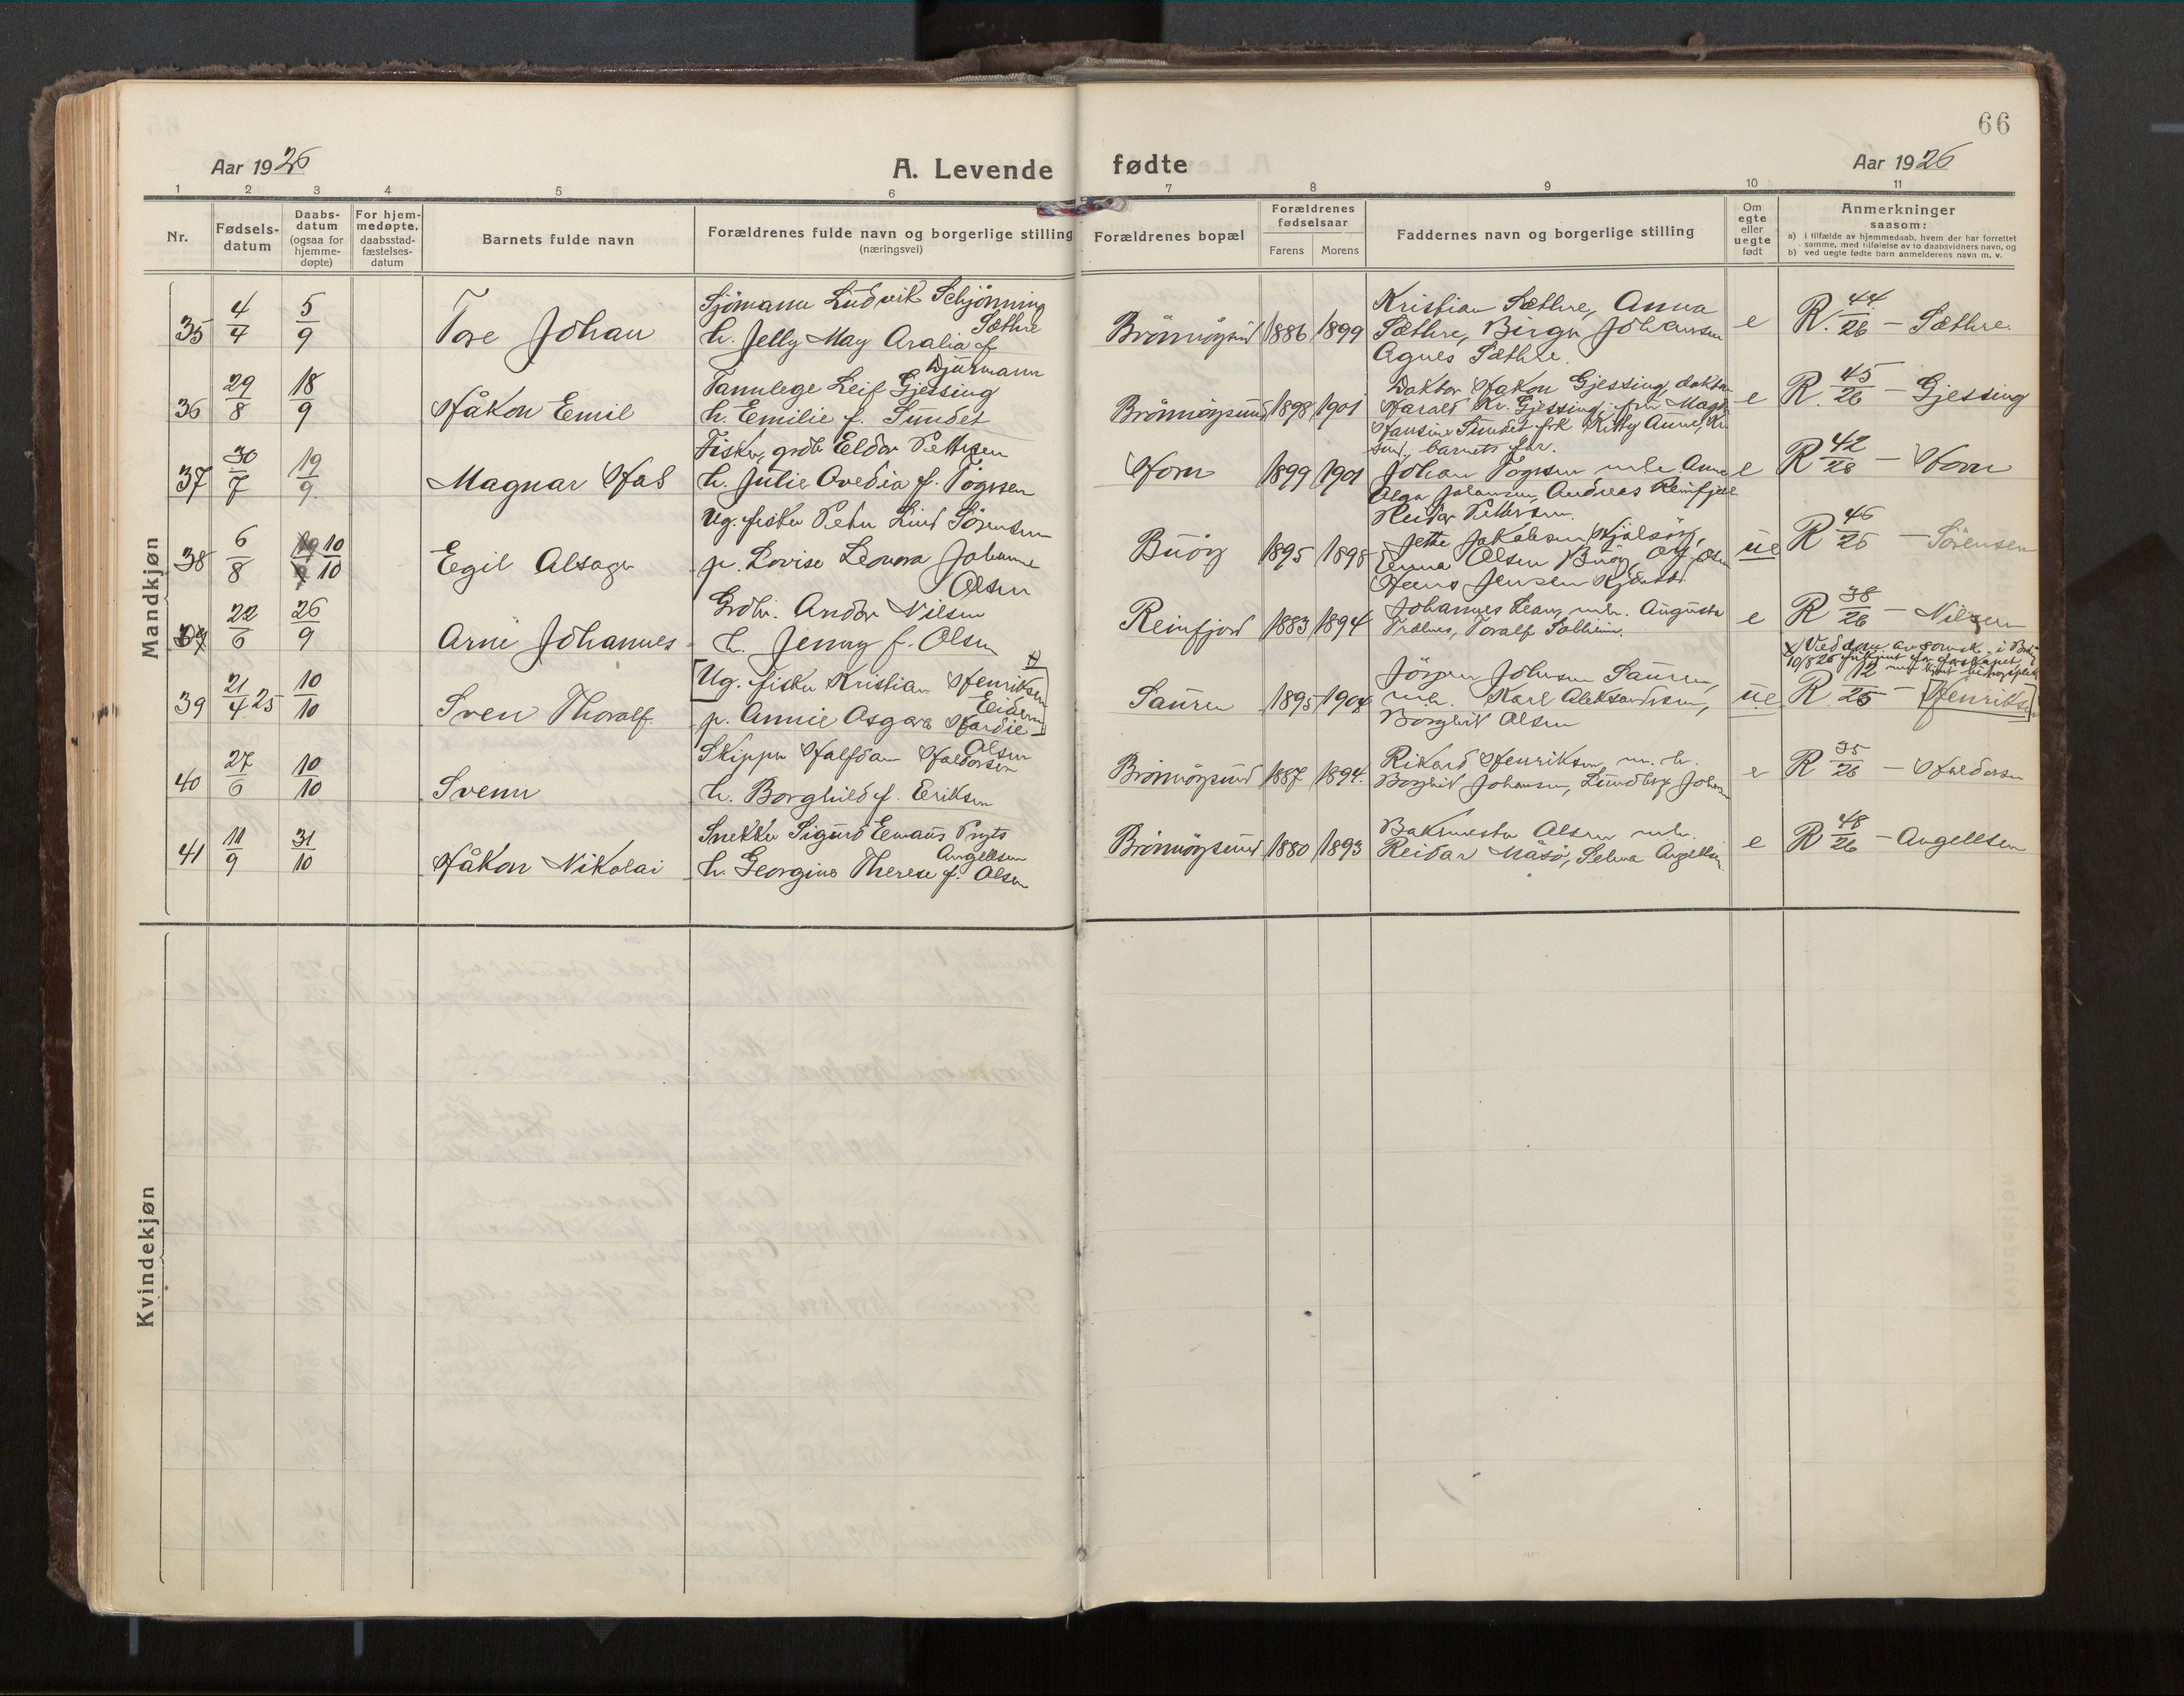 66
Aar 1926
A. Levende fødte
Aar 1926
1 2 3 4 5 6 7 8 9 10 11
Nr.
Fødsels-
datum
Daabs-
datum
(ogsaa for
hjemme-
døpte)
For hjem-
medøpte,
daabsstad-
fæstelses-
datum
Barnets fulde navn
Forældrenes fulde navn og borgerlige stilling
(næringsvei)
Forældrenes bopæl
Forældrenes
fødselsaar
Farens Morens
Faddernes navn og borgerlige stilling
Om
egte
eller
uegte
født
Anmerkninger
saasom:
a) i tilfælde av hjemmedaab, hvem der har forrettet
samme, med tilføielse av to daabsvidners navn, og
b) ved uegte fødte barn anmelderens navn m. v.
Mandkjøn
35 4/7 5/9 Tore Johan
Sjömann Ludvik Schjönning
Sæthre
h. Jelly May Aralia f.
Djurmann
Brönnöysund 1886 1899
Kristian Sæthre, Anna
Sæthre, Birger Johansen
Agnes Sæthre.
e R. 44/26 – Sæthre.
36 29/8 18/9 Håkon Emil
Tannlege Leif Gjessing
h. Emilie f. Sundet
Brönnöysund 1898 1901
Doktor Håkon Gjessing, doktor
Harald Kr. Gjessing, fru Magda
Hansine Sundet frk Kitty Anne
barnets far.
e R. 45/26 – Gjessing
37 30/7 19/9 Magnar Hal
Fisker, grdbr Eldor Pettersen
h. Julie Ovedia f. Torgersen
Horn 1899 1901
Johan Torgersen, m.h. Anne
Olga Johansen, Andreas Reinfjell
Reidar Pettersen.
e R 42/26 – Horn
38 6/8 10/10 Egil Alsager
Ug. fisker Peder Lind Sörensen
p. Lovise Leonora Johanne
Olsen
Buöy 1895 1898
Jette Jakobsen Hjalsöy,
Emma Olsen Buöy, Olf Olsen
Hans Jensen
ue R 46/26 – Sörensen
22/6 26/9 Arne Johannes
Grdbr. Andor Nilsen
h. Jenny f. Olsen
Reinfjord 1883 1894
Johannes m.h. Augusta
Trælnes, Toralf Solheim.
e R 38/26 – Nilsen
39 21/4 25 10/10 Sven Thoralf
[Ug. fisker Kristian Henriksen x)
Eidem]
p. Annie Asgara Hardie
Olsen
Sauren 1895 1904
Jörgen Johnsen Sauren,
m.h. Karl Aleksandersen,
Borghil Olsen
ue x) Ved dom av
10/8 26 frikjent for farskapet,
R 12/25 – [Henriksen]
40 27/6 10/10 Svenn
Skipper Halfdan Haldorsen
h. Borghild f. Eriksen
Brönnöysund 1887 1894.
Rikard Henriksen, m.h.
Borghil Johansen, Lundberg Johansen
e R 35/26 – Haldorsen
41 11/9 31/10 Håkon Nikolai
Snekker Sigurd Emaus Prytz
Angellsen
h. Georgine Therese f. Olsen
Brönnöysund 1880 1893
Bakermester Olsen m.h.
Reidar Måsö, Selma Angellsen
e R 48/26 – Angellsen
Kvindekjøn